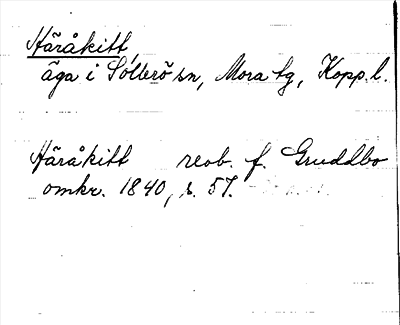 Häråkitt,
äga i Sollerö sn, Mora tg, Kopp. l.
Häråkitt reob. f. Gruddbo
omkr. 1840, s. 57.